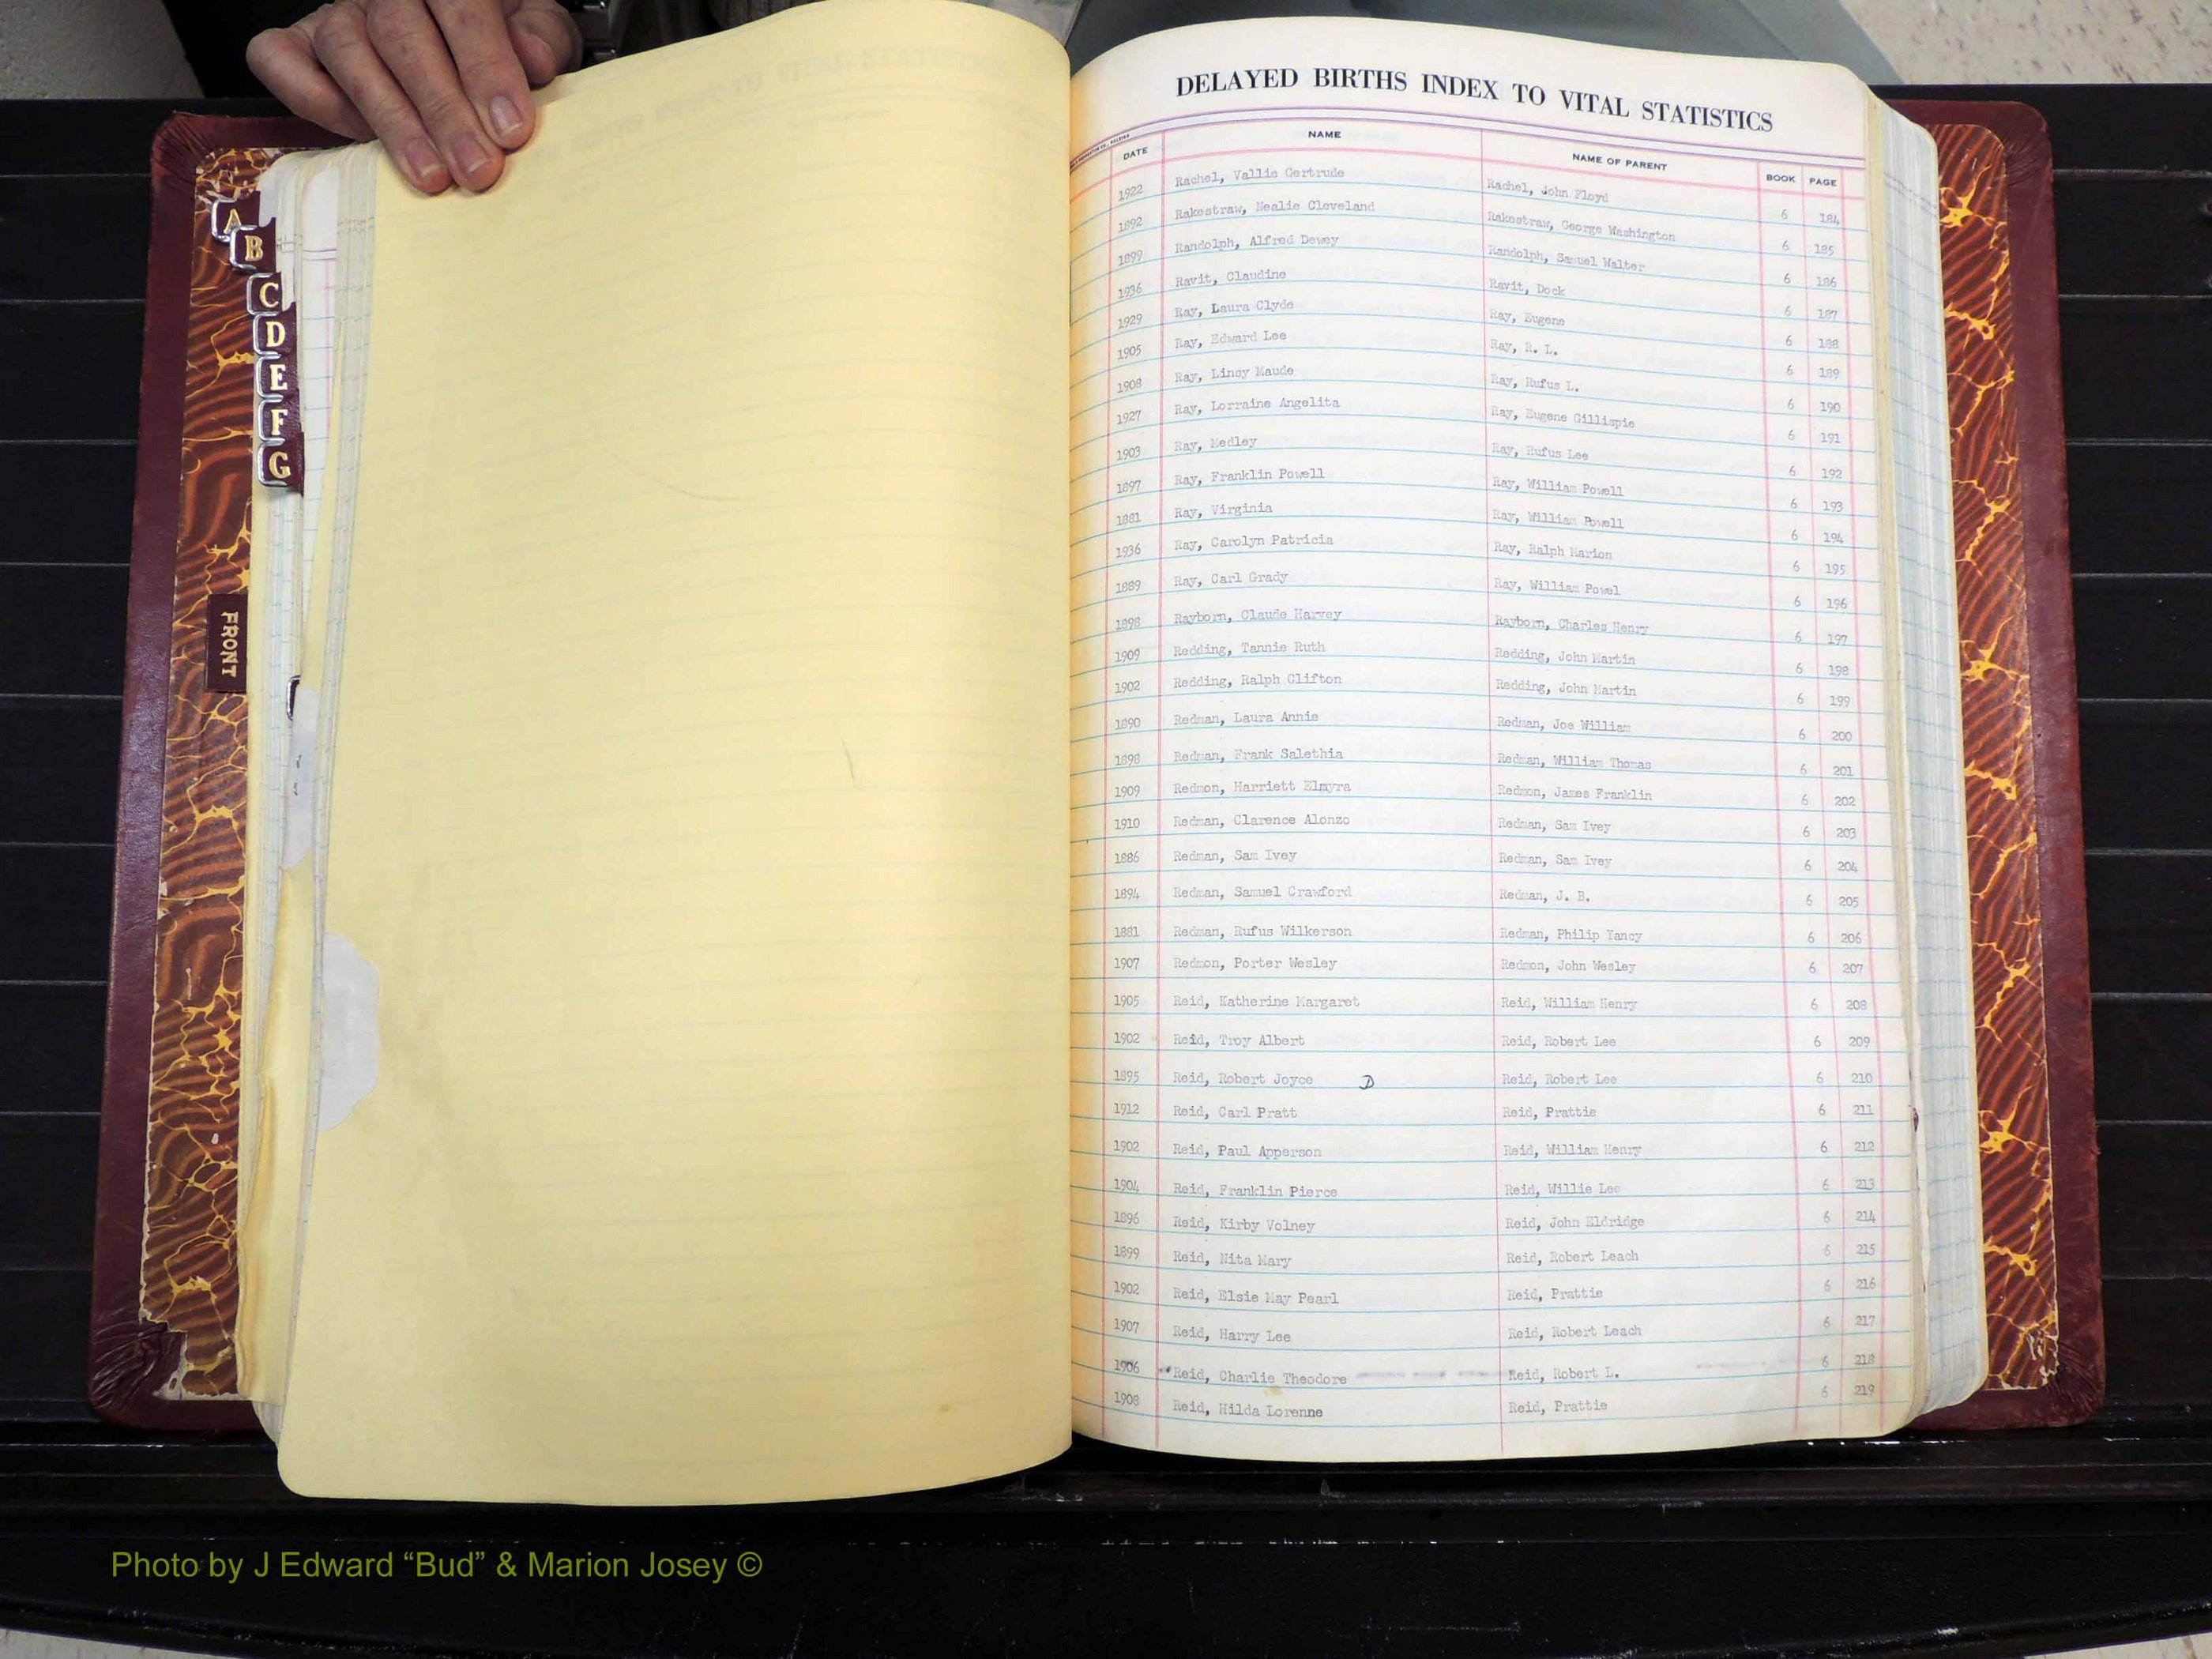 DELAYED BIRTHS INDEX TO VITAL STATISTICS
DATE NAME NAME OF PARENT BOOK PAGE
1922 Rachel, Vallie Gertrude Rachel, John Floyd 6 184
1892 Rakestraw, Nealie Cleveland Rakestraw, George Washington 6 185
1899 Randolph, Alfred Dewey Randolph, Samuel Walter 6 186
1936 Ravit, Claudine Ravit, Dock 6 187
1929 Ray, Laura Clyde Ray, Eugene 6 188
1905 Ray, Edward Lee Ray, R. L. 6 189
1908 Ray, Linsy Maude Ray, Rufus L. 6 190
1927 Ray, Lorraine Angelita Ray, Eugene Gillispie 6 191
1903 Ray, Medley Ray, Rufus Lee 6 192
1897 Ray, Franklin Powell Ray, William Powell 6 193
1881 Ray, Virginia Ray, William Powell 6 194
1936 Ray, Carolyn Patricia Ray, Ralph Marion 6 195
1889 Ray, Carl Grady Ray, William Powel 6 196
1898 Rayborn, Claude Harvey Rayborn, Charles Henry 6 197
1909 Redding, Tannie Ruth Redding, John Martin 6 198
1902 Redding, Ralph Clifton Redding, John Martin 6 199
1890 Redman, Laura Annie Redman, Joe William 6 200
1898 Redman, Frank Salethia Redman, William Thomas 6 201
1909 Redmon, Harriett Elmyra Redmon, James Franklin 6 202
1910 Redman, Clarence Alonzo Redman, Sam Ivey 6 203
1886 Redman, Sam Ivey Redman, Sam Ivey 6 204
1894 Redman, Samuel Crawford Redman, J. B. 6 205
1881 Redman, Rufus Wilkerson Redman, Philip Yancy 6 206
1907 Redmon, Porter Wesley Redmon, John Wesley 6 207
1905 Reid, Katherine Margaret Reid, William Henry 6 208
1902 Reid, Troy Albert Reid, Robert Lee 6 209
1895 Reid, Robert Joyce D Reid, Robert Lee 6 210
1912 Reid, Carl Pratt Reid, Prattie 6 211
1902 Reid, Paul Apperson Reid, William Henry 6 212
1904 Reid, Franklin Pierce Reid, Willie Lee 6 213
1896 Reid, Kirby Volney Reid, John Eldridge 6 214
1899 Reid, Nita Mary Reid, Robert Leach 6 215
1902 Reid, Elsie May Pearl Reid, Prattie 6 216
1907 Reid, Harry Lee Reid, Robert Leach 6 217
1906 Reid, Charlie Theodore Reid, Robert L. 6 218
1908 Reid, Hilda Lorenne Reid, Prattie 6 219
A
B
C
D
E
F
G
FRONT
Photo by J Edward “Bud” & Marion Josey ©